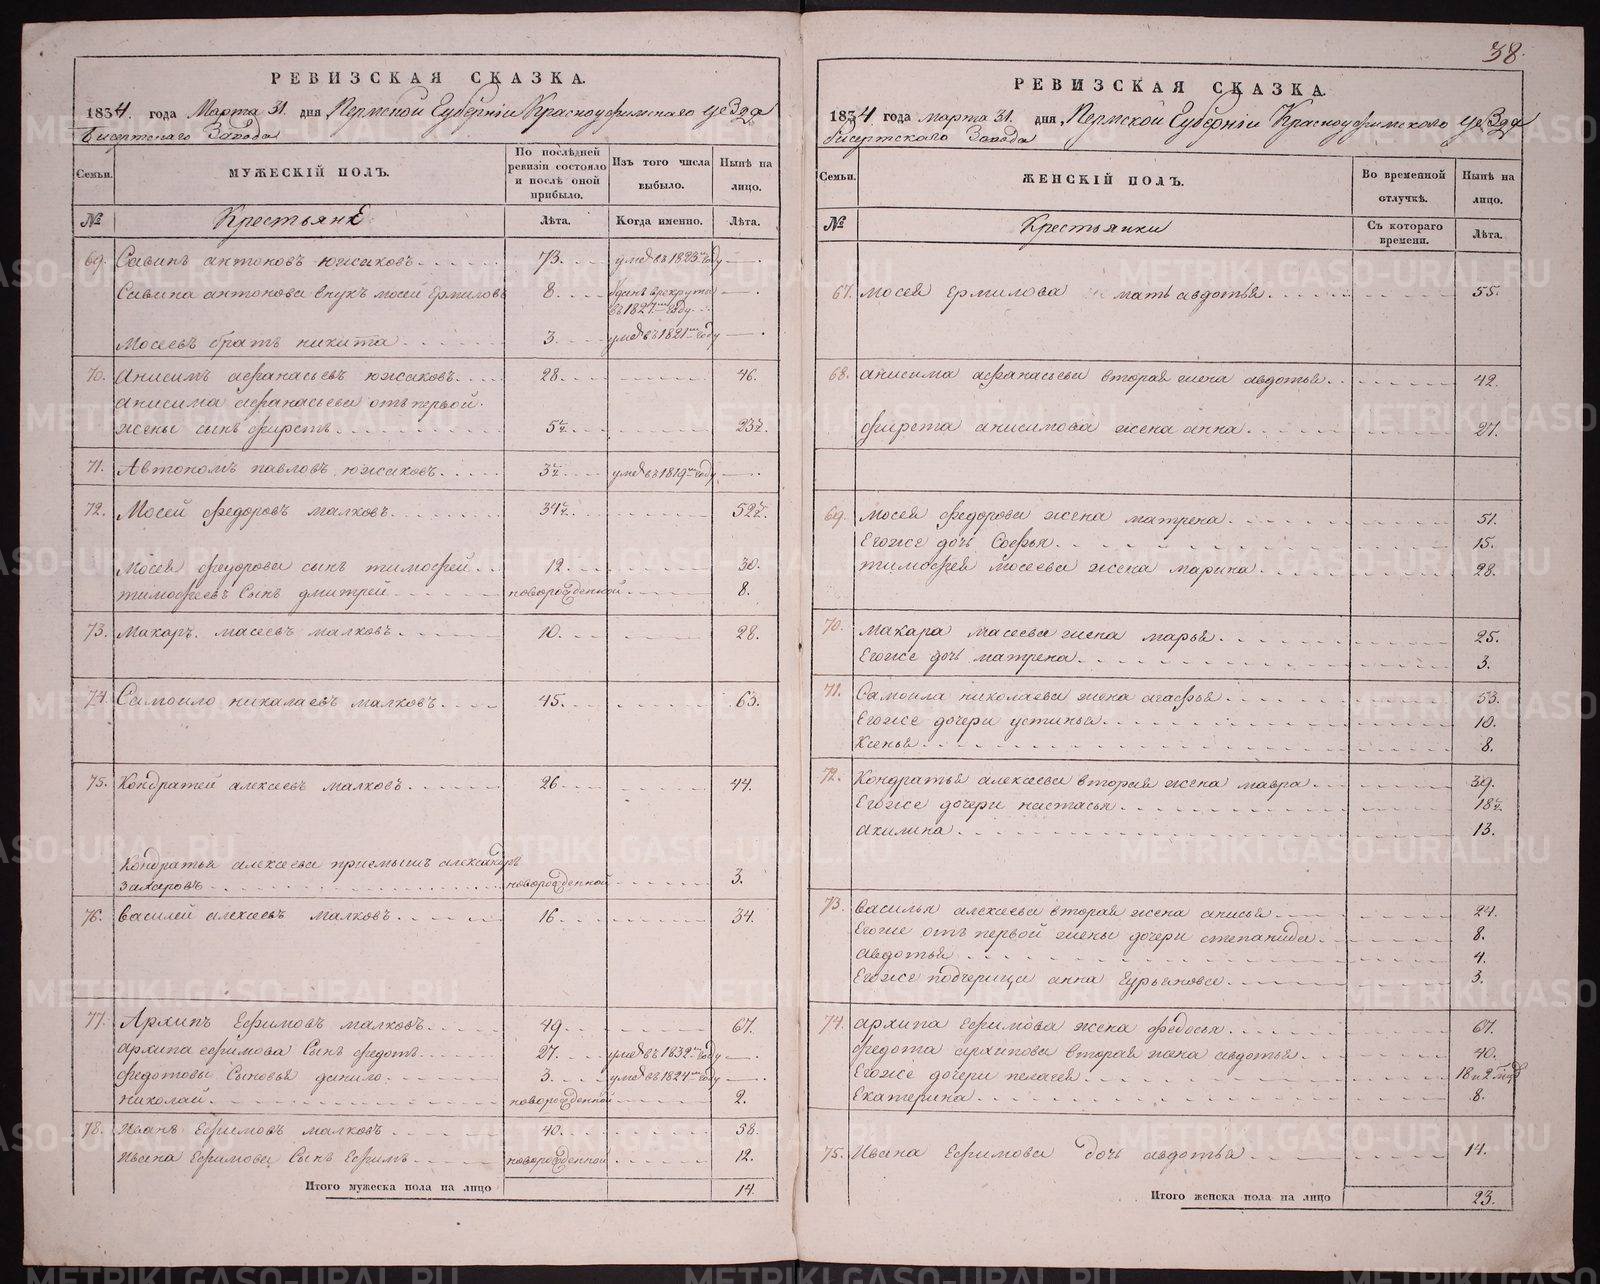 РЕВИЗСКАЯ СКАЗКА.
1834. года Марта 31. дня Пермской Губерніи Красноуфимскаго уезда
Бисертскаго Завода
Семьи.
МУЖЕСКІЙ ПОЛЪ.
По послѣдней ревизіи состояло и послѣ оной прибыло.
Изъ того числа выбыло.
Нынѣ на лицо.
№
Крестьянѣ
Лѣта.
Когда именно.
Лѣта.
69. Савинъ антоновъ южаковъ 73. умеръ въ 1823 году
Савина антонова внукъ мосей Ермиловъ 8. в рекруты
въ 1827 году
Мосеевъ братъ никита 3. умеръ въ 1821 году
70. Анисимъ афанасьевъ южаковъ. 28. 46.
анисима афанасьева отъ первой
жены сынъ фирстъ. 5½ 23½
71. Автономъ павловъ южаковъ. 3½ умеръ въ 1819 году
72. Мосей федоровъ малковъ. 34½ 52½
Мосея федорова сынъ тимофей. 12. 30.
тимофеевъ Сынъ дмитрей новорожденной 8.
73. Макаръ масеевъ малковъ. 10. 28.
74. Самоило никалаевъ малковъ. 45. 63.
75. Кондратей алексеевъ малковъ. 26 44.
Кондратья алексеева приемышъ александръ
Захаровъ новорожденной 3.
76. Василей алексеевъ малковъ. 16 34.
77. Архипъ Ефимовъ малковъ. 49. 67.
архипа ефимова Сынъ федотъ. 27. умеръ въ 1832 году
федотовы Сыновья данило. 3. умеръ въ 1824 году
николай. новорожденной 2.
78. Иванъ Ефимовъ малковъ. 40. 58.
Ивана Ефимова Сынъ Ефимъ. новорожденной 12.
Итого мужеска пола на лицо 14.
38.
РЕВИЗСКАЯ СКАЗКА.
1834 года марта 31. дня Пермской Губерніи Красноуфимскаго уезда
Бисертскаго Завода
Семьи.
ЖЕНСКІЙ ПОЛЪ.
Во временной отлучкѣ.
Нынѣ на лицо.
№
Крестьянки
Съ котораго времени.
Лѣта.
67. мосея ермилова мать авдотья. 55.
68. анисима афанасьева вторая жена авдотья. 42.
фирста анисимова жена анна. 27.
69. мосея федорова жена матрена. 51.
Егоже дочь Софья. 15.
тимофея мосеева жена марина. 28.
70. макара масеева жена марья. 25.
Егоже дочь матрена. 3.
71. Самоила николаева жена агафья. 53.
Егоже дочери устинья. 10.
Ксенья. 8.
72. Кондратья алексеева вторая жена мавра. 39.
Егоже дочери настасья. 18½
акилина. 13.
73. Василья алексеева вторая жена анисья. 24.
Егоже отъ первой жены дочери степанида. 8.
авдотья. 4.
Егоже подчерица анна Гурьянова. 3.
74. архипа ефимова жена федосья. 67.
федота архипова вторая жена авдотья. 40.
Егоже дочери пелагея. 18 и 2 мцѣ
Екатерина. 8.
75. Ивана Ефимова дочь авдотья. 14.
Итого женска пола на лицо 23.
METRIKI.GASO-URAL.RU